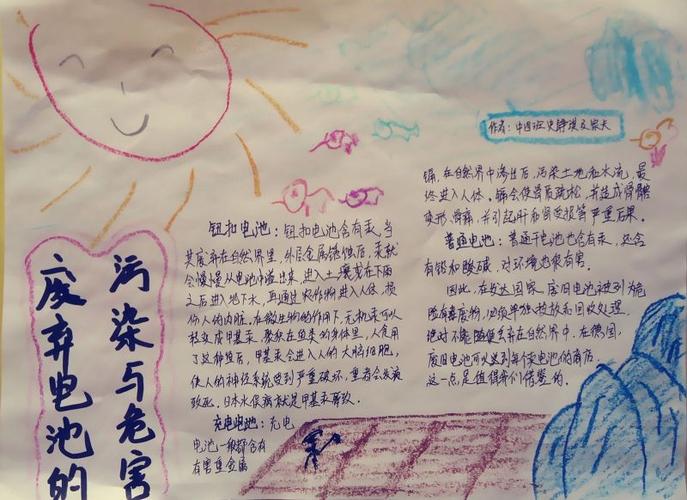 废弃电池的
污染与危害
作者:中四班史静淇及家长
钮扣电池:钮扣电池含有汞,当
其废弃在自然界里,外层金属锈蚀后,汞就
会慢慢从电池中溢出来,进入土壤或在下雨
之后进入地下水,再通过农作物进入人体,损
伤人的内脏。在微生物的作用下,无机汞可以
转变成甲基汞,聚积在鱼类的身体里,人食用
了这种鱼后,甲基汞会进入人的大脑细胞,
使人的神经系统受到严重破坏,重者会发疯
致死。日本水俣病就是甲基汞所致。
充电电池:充电
电池一般都含有
有害重金属
镉,在自然界中渗出后,污染土地和水流,最
终进入人体。镉会使骨质疏松,并造成骨骼
变形、骨痛,并引起肝和肾受损等严重后果。
普通电池:普通干电池也含有汞,还含
有铅和酸碱,对环境也很有害。
因此,在发达国家,废旧电池被列为危
险有毒废物,必须单独投放和回收处理,
绝对不能随便丢弃在自然界中。在德国,
废旧电池可以送到每个卖电池的商店,
这一点是值得我们借鉴的。